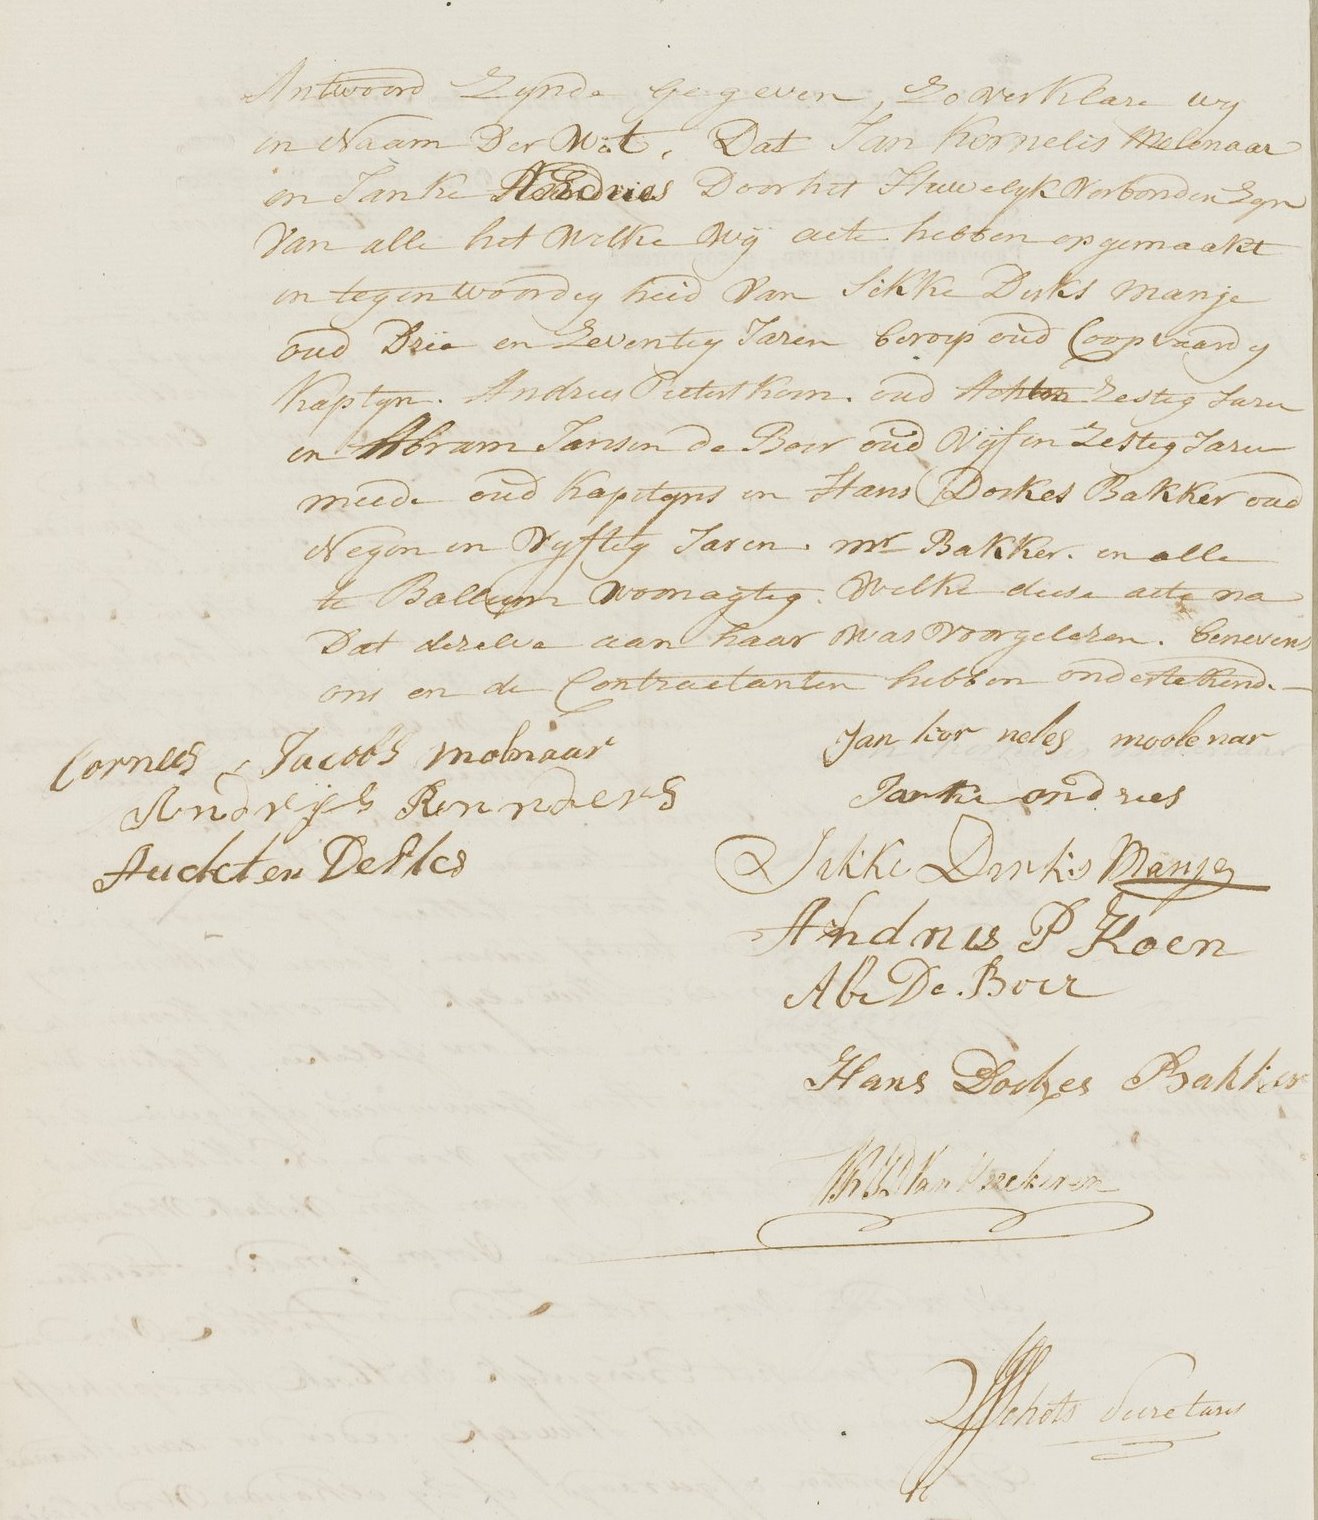 Antwoord Zynde gegeven, Zo verklare wy
in Naam Der Wet, Dat Jan Kornelis Molenaar
en Janke Andries Door het Huwelyk Verbonden Zyn
Van alle het Welke Wij acte hebben opgemaakt
in tegenwoordig heid Van Sikke Dirks Manje
oud Drie en Zeventig Jaren beroep oud Coopvaardy
Kaptyn. Andries Pieters Koen. oud Zestig Jaren
en Abram Jansen de Boer oud Vijf en Zestig Jaren
meede oud Kapityns en Hans Doekes Bakker oud
Negen en Vyftig Jaren. mr Bakker. en alle
te Ballum woonagtig. Welke deese acte na
Dat dezelve aan haar was Voorgelezen. benevens
ons en de Contractanten hebben ondertekend. —
Cornees Jacobs molnaar
Jan kor neles moolenar
Andryes Rennders
Janke ondries
Auckten Detles
Sikke Dirks Manje
Andries P Koen
Ab De Boer
Hans Doekes Bakker
Van Heeckeren
Schots Secretaris